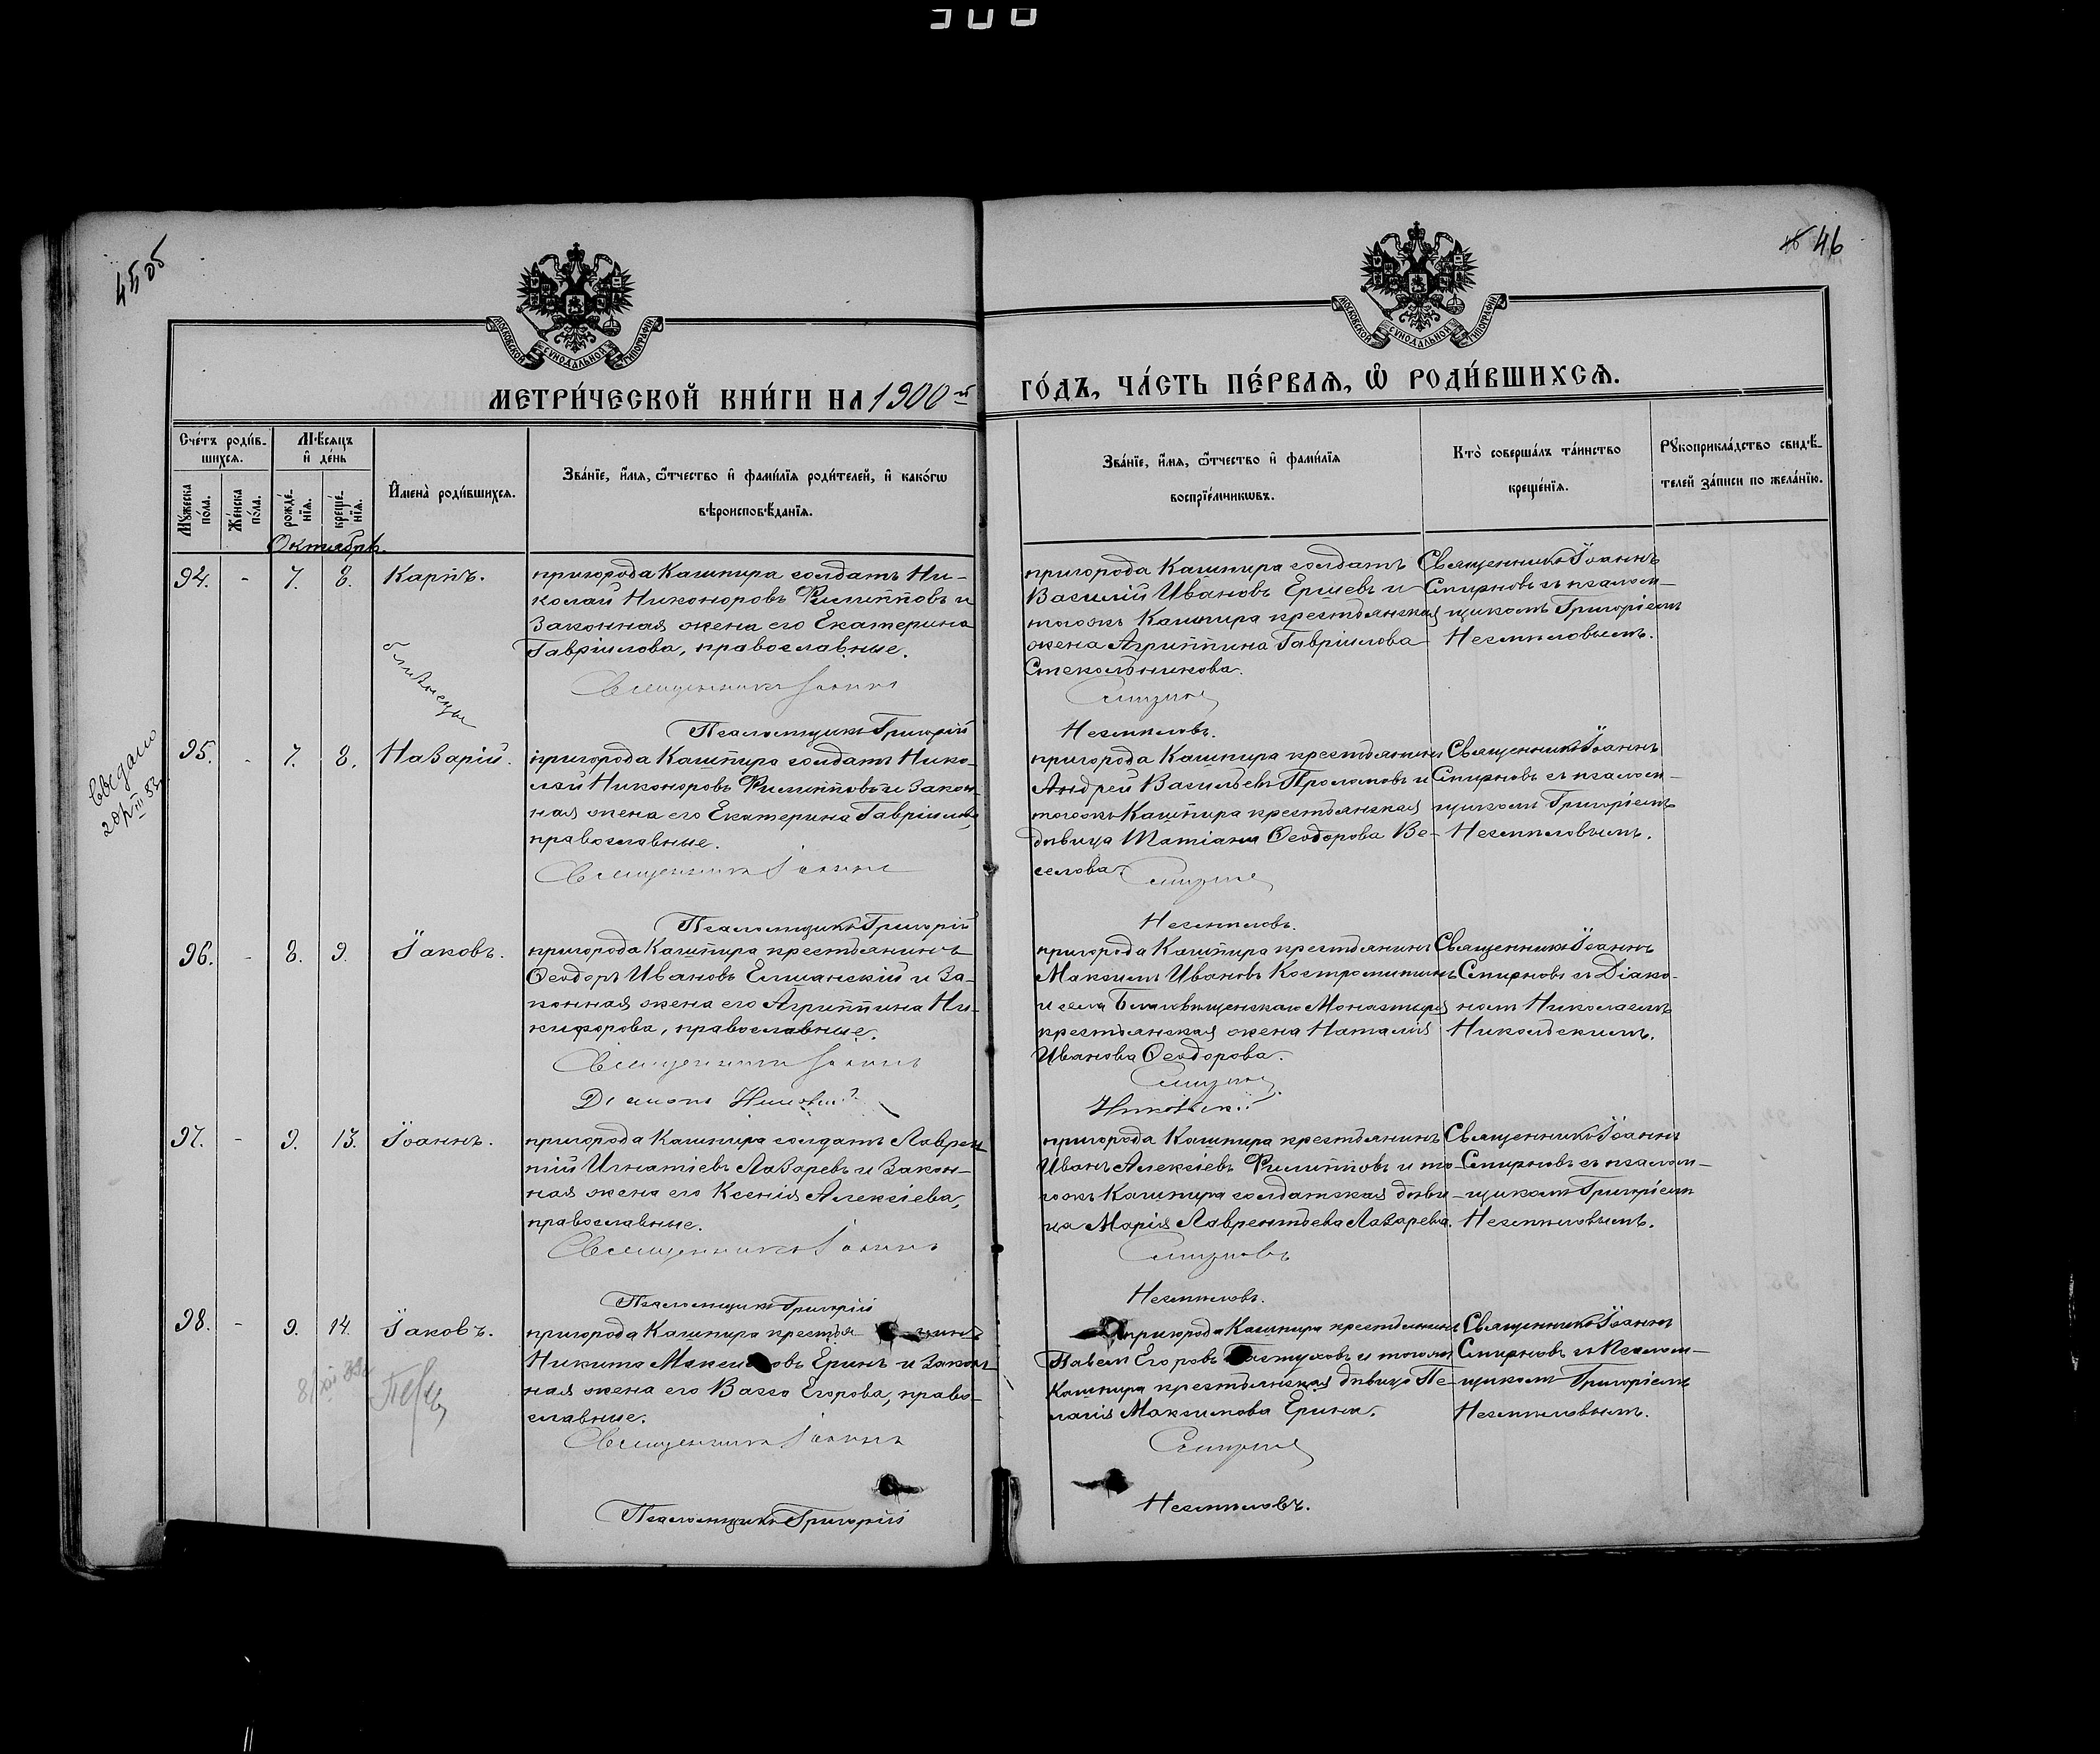 45 об
46
МОСКОВСКОЙ СѴНОДАЛЬНОЙ ТИПОГРАФІИ
МОСКОВСКОЙ СѴНОДАЛЬНОЙ ТИПОГРАФІИ
МЕТРИ́ЧЕСКОЙ КНИ́ГИ НА 1900 й
ГО́ДЪ, ЧА́СТЬ ПЕ́РВАѦ, Ѽ РОДИ́ВШИХСѦ.
Сче́тъ роди́в-
шихсѧ.
Мѣ́сѧцъ
и҆ де́нь
Мꙋ́жеска
по́ла.
Же́нска
по́ла.
рожде́-
нїѧ.
креще́-
нїѧ.
И҆мена̀ роди́вшихсѧ.
Зва́нїе, и҆́мѧ, ѻ҆́тчество и҆ фами́лїѧ роди́телей, и҆ како́гѡ
вѣроисповѣ́данїѧ.
Зва́нїе, и҆́мѧ, ѻ҆́тчество и҆ фами́лїѧ
воспрїе́мникѡвъ.
Кто̀ соверша́лъ та́инство
креще́нїѧ.
Рꙋкоприкла́дство свидѣ́-
телей за́писи по жела́нїю.
Октябрь.
94. - 7. 8. Карпъ.
пригорода Кашпира солдатъ Ни-
колай Никоноровъ Филипповъ и
законная жена его Екатерина
Гавріилова, православные.
Священникъ Іоаннъ
Псаломщикъ Григорій
пригорода Кашпира солдатъ
Василій Ивановъ Ершевъ и
тогожъ Кашпира крестьянская
жена Агриппина Гавріилова
Стекольникова.
Смирновъ
Несмѣловъ.
Священникъ Іоаннъ
Смирновъ съ псалом-
щикомъ Григоріемъ
Несмѣловымъ.
близнецы
95. - 7. 8. Назарій.
пригорода Кашпира солдатъ Нико-
лай Никоноровъ Филипповъ и закон-
ная жена его Екатерина Гавріилова,
православные.
Священникъ Іоаннъ
Псаломщикъ Григорій
пригорода Кашпира крестьянинъ
Андрей Васильевъ и
тогожъ Кашпира крестьянская
дѣвица Татіана Ѳеодорова Ве-
селова.
Смирновъ
Несмѣловъ.
Священникъ Іоаннъ
Смирновъ съ псалом-
щикомъ Григоріемъ
Несмѣловымъ.
96. - 8. 9. Іаковъ.
пригорода Кашпира крестьянинъ
Ѳеодоръ Ивановъ Елшанскій и за-
конная жена его Агриппина Ни-
кифорова, православные.
Священникъ Іоаннъ
Діаконъ Николай
пригорода Кашпира крестьянинъ
Максимъ Ивановъ Костромитинъ
и села Благовѣщенскаго Монастыря
крестьянская жена Наталія
Иванова Ѳеодорова.
Смирновъ
Никольскій
Священникъ Іоаннъ
Смирновъ съ Діако-
номъ Николаемъ
Никольскимъ.
97. - 9. 13. Іоаннъ.
пригорода Кашпира солдатъ Лаврен-
тій Игнатіевъ Лазаревъ и закон-
ная жена его Ксенія Алексіева,
православные.
Священникъ Іоаннъ
Псаломщикъ Григорій
пригорода Кашпира крестьянинъ
Иванъ Алексіевъ Филипповъ и то-
гожъ Кашпира солдатская дѣви-
ца Марія Лаврентьева Лазарева.
Смирновъ
Несмѣловъ.
Священникъ Іоаннъ
Смирновъ съ псалом-
щикомъ Григоріемъ
Несмѣловымъ.
98. - 9. 14. Іаковъ.
пригорода Кашпира крестья нинъ
Никита Максимовъ Еринъ и закон-
ная жена его Васса Егорова, право-
славные.
Священникъ Іоаннъ
Псаломщикъ Григорій
пригорода Кашпира крестьянинъ
Павелъ Егоровъ Пастуховъ и тогожъ
Кашпира крестьянская дѣвица Пе-
лагія Максимова Ерина.
Смирновъ
Несмѣловъ.
Священникъ Іоаннъ
Смирновъ съ Псалом-
щикомъ Григоріемъ
Несмѣловымъ.